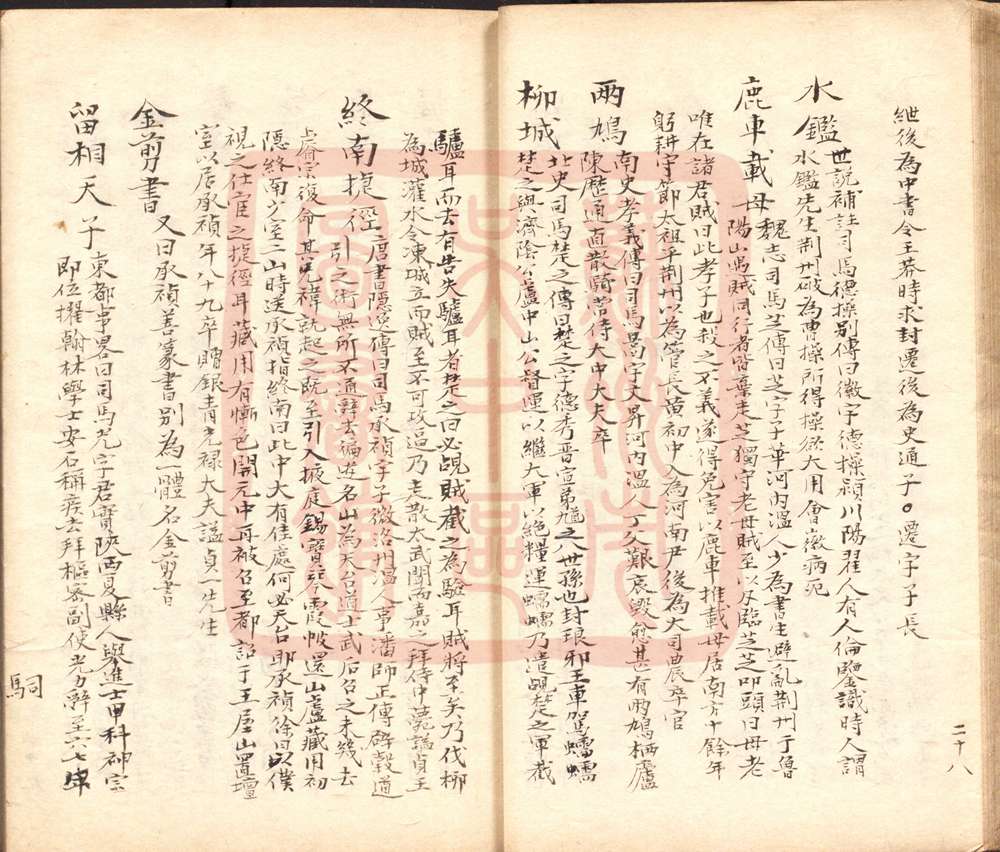 紲後為中書令王莽時求封遷後為史通子○遷字子長
水鑑 世説補註司馬德操別傳曰徽字德操潁川陽翟人有人倫鑒識時人謂
水鑑先生荆州破為曹操所得操欲大用會徽病死
鹿車載母 魏志司馬芝傳曰芝字子華河内温人少為書生避亂荆州于魯
陽山遇賊同行者皆棄走芝獨守老母賊至以刃臨芝芝叩頭曰母老
唯在諸君賊曰此孝子也殺之不義遂得免害以鹿車推載母居南方十餘年
躬耕守節太祖平荆州以為菅長黄初中入為河南尹後為大司農卒官
兩鳩 南史孝義傳曰司馬暠字文昇河内温人丁父艱哀毁愈甚有兩鳩栖廬
陳歷通直散騎常侍太中大夫卒
柳城 北史司馬楚之傳曰楚之字德秀晋宣帝弟馗之八世孫也封琅邪王車駕蠕蠕
楚之與濟陰公盧中山公督運以繼大軍以絶糧運蠕蠕乃遣覘楚之軍截
驢耳而去有告失驢耳者楚之曰必覘賊截之為驗耳賊將至矣乃伐柳
為城灌水令凍城立而賊至不可攻逼乃走散太武聞而嘉之拜侍中薨謚貞王
終南捷徑 唐書隱逸傳曰司馬承禎字子微洛州温人事潘師正傳辟穀道
引之術無所不通辭去徧遊名山為天台道士武后召之未幾去
睿宗復命其兄褘就起之既至引入掖庭錫寶琴霞帔還山盧藏用初
隱終南少室二山時送承禎指終南曰此中大有佳處何必天台耶承禎徐曰以僕
視之仕宦之捷徑耳藏用有慚色開元中再被召至都詔于王屋山置壇
室以居承禎年八十九卒贈銀青光禄大夫謚貞一先生
金剪書 又曰承禎善篆書别為一體名金剪書
留相天子 東都事畧曰司馬光字君實陝西夏縣人舉進士甲科神宗
即位擢翰林學士安石稱疾去拜樞密副使光力辭至六七
駉
二十八